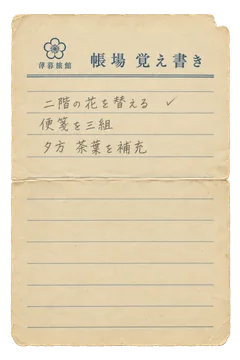 薄暮旅館
帳場 覚え書き
二階の花を替える ✓
便箋を三組
夕方 茶葉を補充